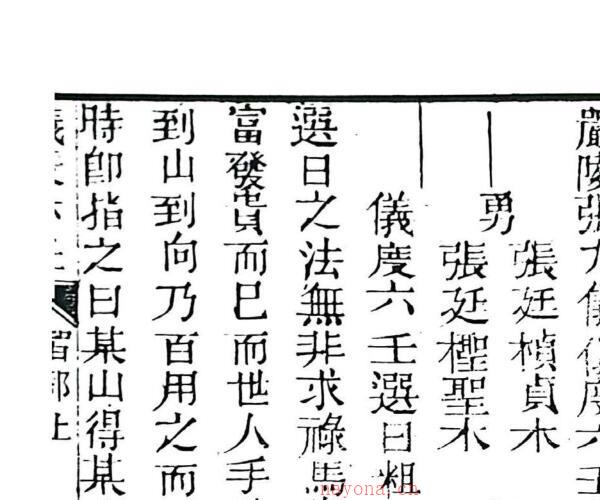 嚴陵張九儀儀度六壬
男
張廷楨貞木
張廷檉聖木
儀度六壬選日粗
選日之法無非求祿馬
富發貴而已而世人手
到山到向乃百用之而
時卽指之曰某山得某
neyona.cn